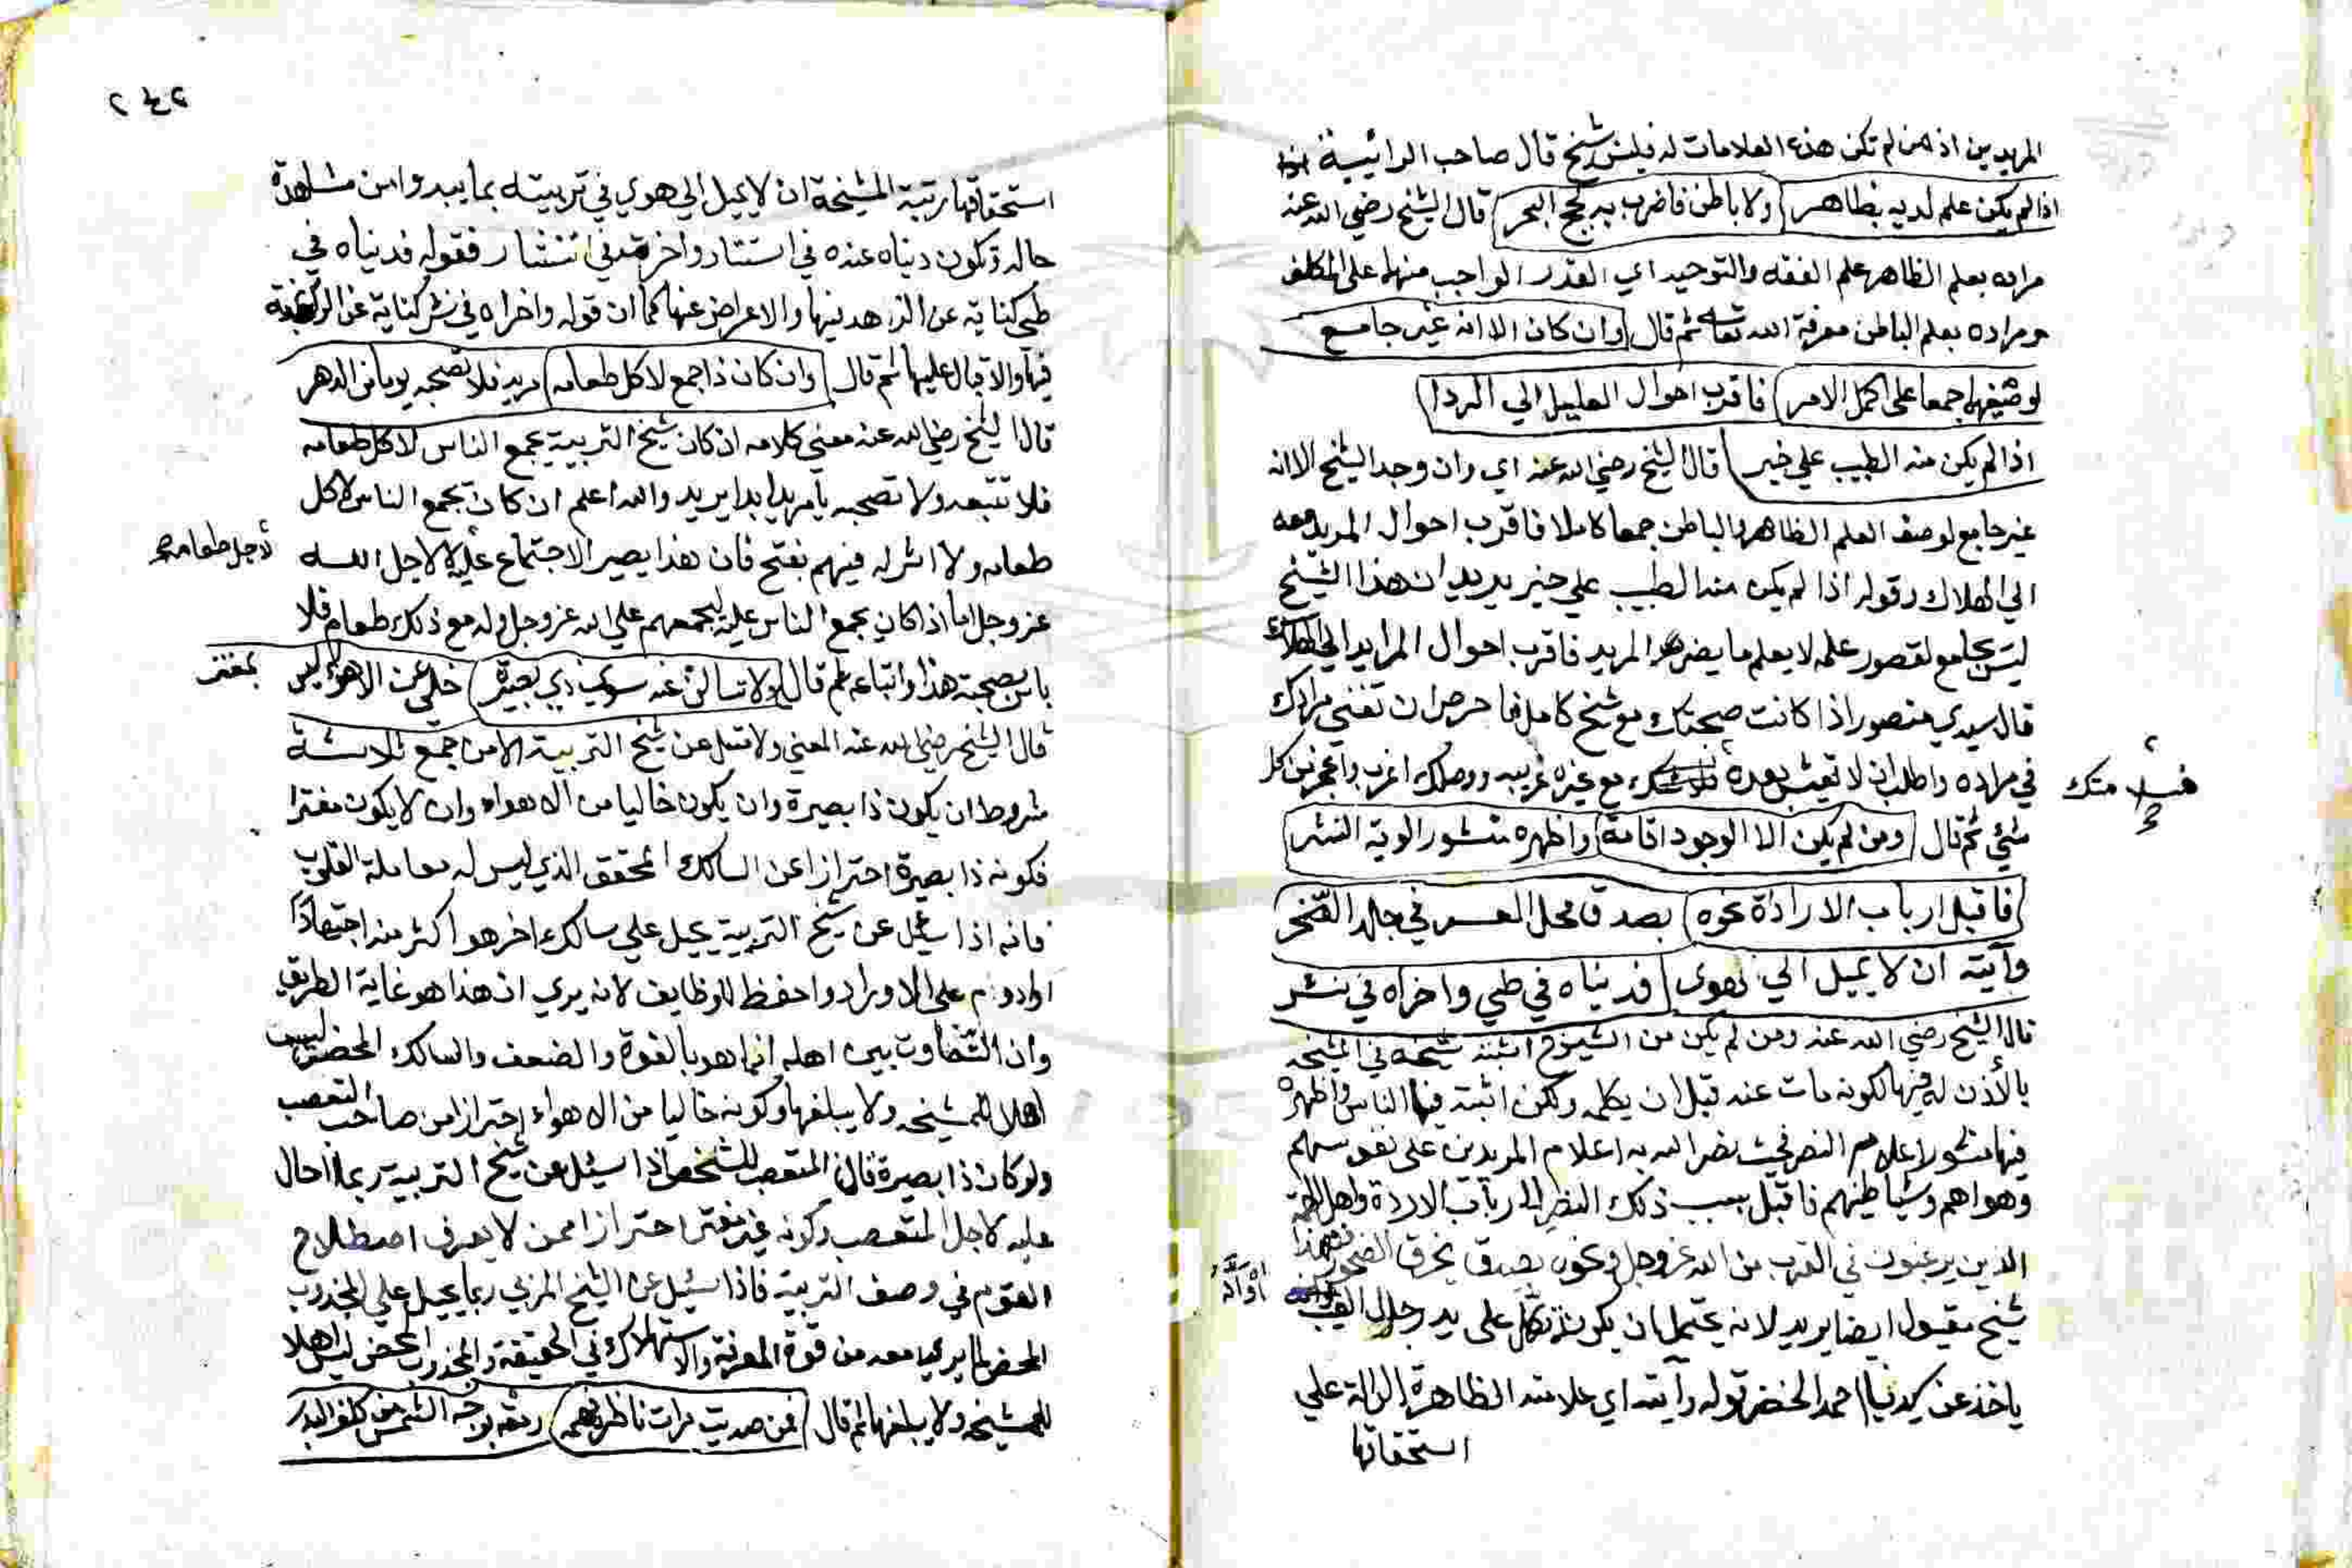 المريدين اذ من لم تكن هذه العلامات له فليس بشيخ قال صاحب الرائية
اذا لم يكن علم لديه بظاهر ولا باطن فاضرب به لجج البحر قال الشيخ رضي الله عنه
مراده بعلم الظاهر علم الفقه والتوحيد اي القدر الواجب منهما على المكلف
ومراده بعلم الباطن معرفة الله تعالى ثم قال وان كان الا انه غير جامع
لوصفيهما جمعا على اكمل الامر فاقرب احوال العليل الي الردا
اذا لم يكن منه الطبيب علي خبر قال الشيخ رضي الله عنه اي وان وجد الشيخ الا انه
غير جامع لوصف العلم الظاهر والباطن جمعا كاملا فاقرب احوال المريد معه
الي الهلاك وقوله اذا لم يكن منه الطبيب علي خبر يريد ان هذا الشيخ
ليس بجامع لقصور علمه لا يعلم ما يضر المريد فاقرب احوال المريد الي الهلاك
قال سيدي منصور اذا كانت صحبتك مع شيخ كامل فاحرص ان تفني مرادك
في مراده واطلب ان لا تعيش بعده مع غيره غريبه ووصلك اغرب واعجز من كل
فسلامتك
شيء ثم قال ومن لم يكن الا الوجود اقامه واظهره منشور الوية النشر
فاقبل ارباب الارادة نحوه بصدق محل العسر في جلد الصخر
وآيته ان لا يميل الي هوى فدنياه في طي واخراه في نشر
قال الشيخ رضي الله عنه ومن لم يكن من الشيوخ اثبته شيخه في المشيخه
بالأذن له فيها لكونه مات عنه قبل ان يكمله ولكن اثبته فيها الناس واظهره
فيها منشور اعلام النصر بحيث نصر الله به اعلام المريدين على نفوسهم
وهواهم وشياطينهم فاقبل بسبب ذلك النصر اليه ارباب الارادة واهل الهمة
الذين يرغبون في القرب من الله عز وجل نحوه بصدق يخرق الصخور فهذا
شيخ مقبول ايضا يريد لانه يحتمل ان يكون تكمل على يد رجال الغيب
ياخذ عن سيدنا احمد الخضر قوله وآيته اي علامته الظاهرة الدالة علي
استحقاقها
٢٤٢
استحقاقها رتبة المشيخة ان لا يميل الي هوى في تربيته بما يبدو من مشاهدة
حاله وتكون دنياه عنده في استتار واخرته في انتشار فقوله فدنياه في
طي كناية عن الزهد فيها والاعراض عنها كما ان قوله واخراه في نشر كناية عن الرغبة
فيها والاقبال عليها ثم قال وان كان ذا جمع لاكل طعامه مريد فلا تصحبه يوما من الدهر
قال الشيخ رضي الله عنه معني كلامه ان كان شيخ التربية يجمع الناس لاكل طعامه
فلا تتبعه ولا تصحبه يا مريد ابدا يريد والله اعلم ان كان يجمع الناس لاكل
طعامه ولا اثر له فيهم بفتح فان هذا يصير الاجتماع عليه لا لاجل الله
لاجل طعامه صح
عز وجل اما اذا كان يجمع الناس عليه ليجمعهم علي الله عز وجل وله مع ذلك طعام فلا
باس بصحبة هذا واتباعه ثم قال ولا تسالن عنه سوي ذي بصيرة خلي عن الاهواء ليس بمغتر
قال الشيخ رضي الله عنه المعني ولا تسل عن شيخ التربية الا من جمع ثلاثة
شروط ان يكون ذا بصيرة وان يكون خاليا من الاهواء وان لا يكون مغترا
فكونه ذا بصيرة احترازا عن السالك المحقق الذي ليس له معاملة القلوب
فانه اذا سئل عن شيخ التربية يحيل علي سالك اخر هو اكثر منه اجتهادا
او ادوم على الاوراد واحفظ للوظايف لانه يري ان هذا هو غاية الطريق
وان التفاوت بين اهله انما هو بالقوة والضعف والسالك المحض ليس
اهلا للمشيخه ولا يبلغها وكونه خاليا من الاهواء احترازا من صاحب التعصب
ولو كان ذا بصيرة فان المتعصب للشخص اذا سئل عن شيخ التربية ربما احال
عليه لاجل التعصب وكونه غير مغتر احترازا ممن لا يعرف اصطلاح
القوم في وصف التربية فاذا سئل عن الشيخ المربي ربما يحيل علي المجذوب
المحض لما يري معه من قوة المعرفة والاستهلاك في الحقيقة والمجذوب المحض ليس اهلا
للمشيخه ولا يبلغها ثم قال فمن صديت مرات ناظر فهمه رمته بوجه الشمس من كلف البدر